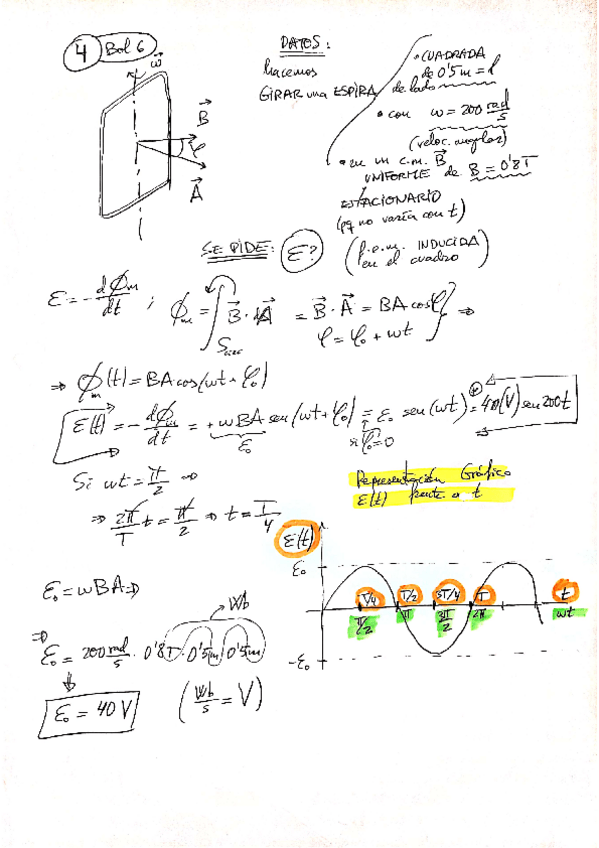 4 Bol 6
ω
B
φ
A
DATOS:
hacemos
GIRAR una ESPIRA
• CUADRADA
de lado de 0'5m = l
• con ω = 200 rad/s
(veloc. angular)
• en un c.m. B
UNIFORME de B = 0'8T
ESTACIONARIO
(pq no varía con t)
SE PIDE: ε?
(f.e.m. INDUCIDA
en el cuadro)
ε = - dΦm/dt ; Φm = ∫ B · dA = B · A = BA cos φ
φ = φ₀ + ωt ⇒
⇒ Φm(t) = BA cos(ωt + φ₀)
ε(t) = - dΦm/dt = + ωBA sen(ωt + φ₀) = ε₀ sen(ωt) = 40(V) sen 200t
ε₀
si φ₀=0
Si ωt = π/2 ⇒
⇒ 2π/T t = π/2 ⇒ t = T/4
Representación Gráfica
ε(t) frente a t
ε(t)
ε₀
T/4 T/2 3T/4 T t
π/2 π 3π/2 2π ωt
-ε₀
ε₀ = ωBA ⇒
Wb
⇒ ε₀ = 200 rad/s · 0'8T · 0'5m · 0'5m
ε₀ = 40 V
(Wb/s = V)